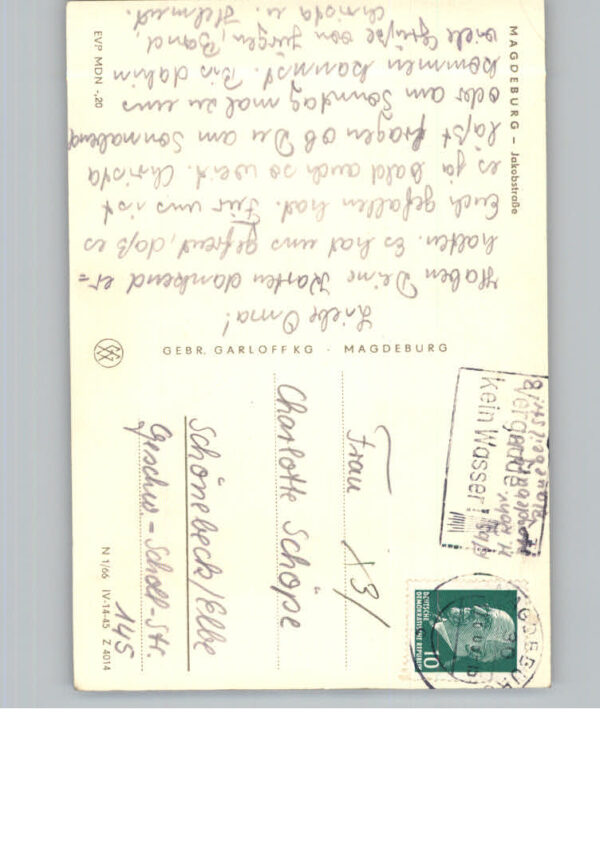 MAGDEBURG – Jakobstraße
Liebe Oma!
Haben Deine Karten dankend er=
halten. Es hat uns gefreut, daß es
Euch gefallen hat. Für uns ist
es ja bald auch so weit. Christa
läßt fragen ob Du am Sonnabend
oder am Sonntag mal zu uns
kommen kannst. Bis dahin
viele Grüße von Jürgen, Band,
Christa u. Helmut.
EVP MDN -,20
GEBR. GARLOFF KG · MAGDEBURG
Vergeude
kein Wasser
MAGDEBURG
DEUTSCHE
DEMOKRATISCHE REPUBLIK
10
Frau X3/
Charlotte Schöpe
Schönebeck/Elbe
Geschw.-Scholl-Str.
145
N 1/66 IV-14-45 Z 4014